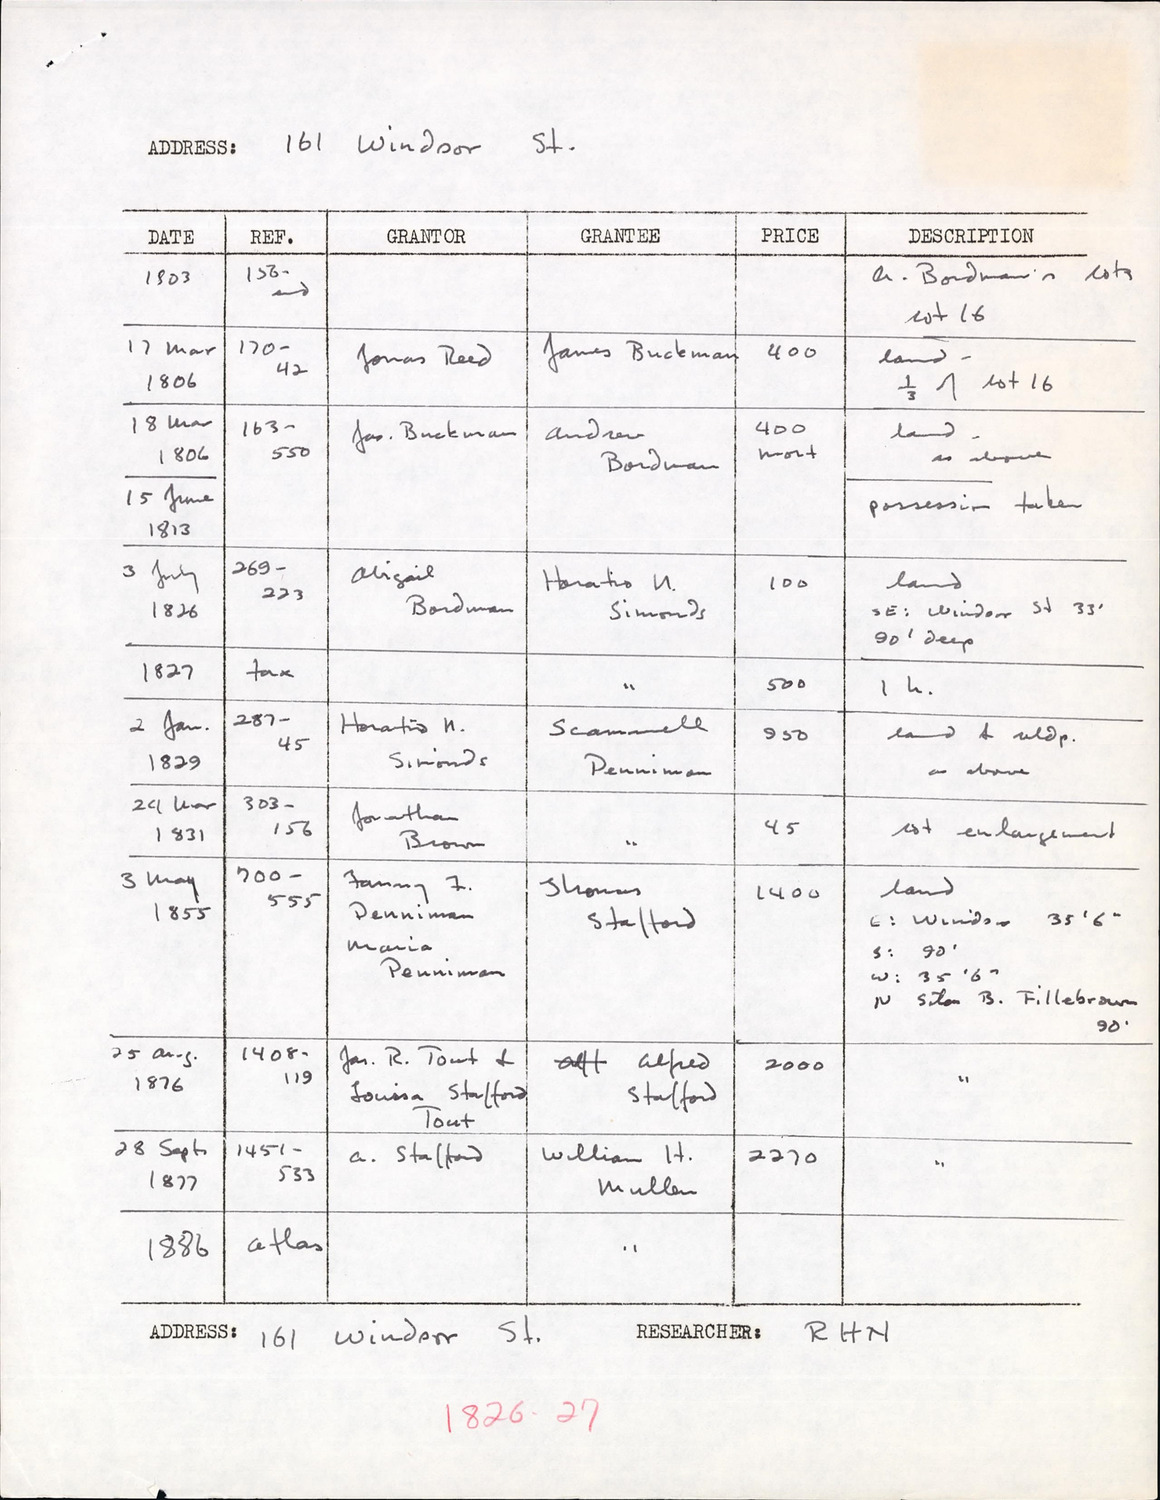 ADDRESS: 161 Windsor St.
DATE REF. GRANTOR GRANTEE PRICE DESCRIPTION
1803 156- end A. Bordman's lots
lot 16
17 Mar 1806 170-42 Jonas Reed James Buckman 400 land -
1/3 of lot 16
18 Mar 1806 163-550 Jas. Buckman Andrew Bordman 400 mort land -
as above
15 June 1813 possession taken
3 July 1826 269-223 Abigail Bordman Horatio N. Simonds 100 land
SE: Windsor St 33'
90' deep
1827 tax " 500 1 h.
2 Jan. 1829 287-45 Horatio N. Simonds Scammell Penniman 950 land & bldp.
as above
24 Mar 1831 303-156 Jonathan Brown " 45 lot enlargement
3 May 1855 700-555 Fanny F. Penniman Maria Penniman Thomas Stafford 1400 land
E: Windsor 35'6"
S: 90'
W: 35'6"
N Silas B. Fillebrown
90'
25 Aug. 1876 1408-119 Jas. R. Tout & Louisa Stafford Tout Alfred Stafford 2000 "
28 Sept. 1877 1451-533 A. Stafford William H. Mullen 2270 "
1886 atlas "
ADDRESS: 161 Windsor St. RESEARCHER: RHN
1826-27